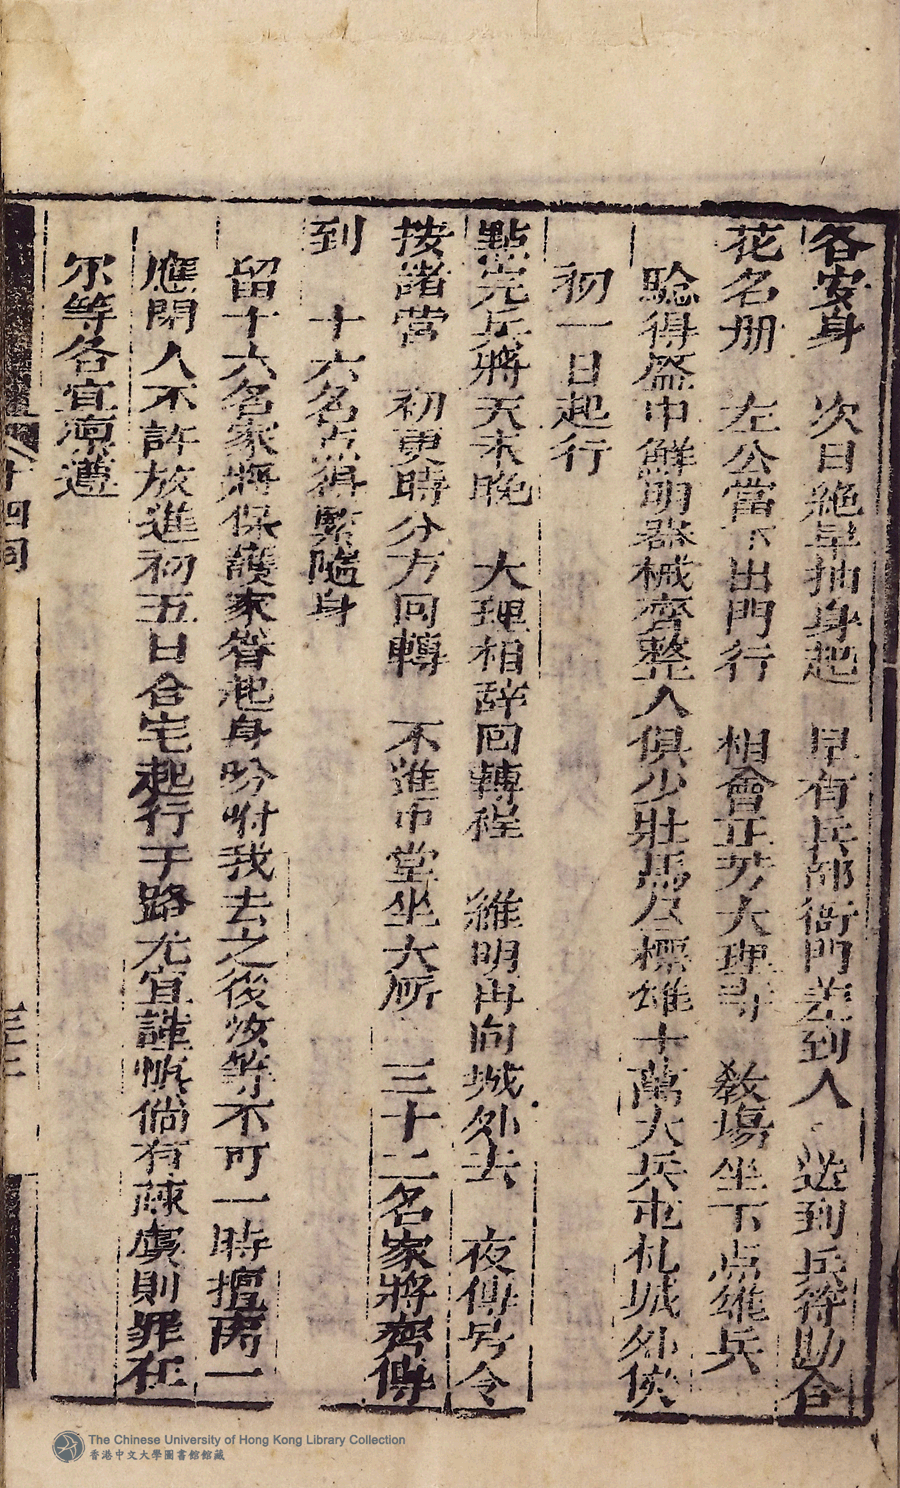 各安身　次日絶早抽身起　早有兵部衙門差到人　送到兵符助合
花名册　左公當下出門行　相會正方大理寺　教場坐下点雄兵
騐得盔巾鮮明器械齊整人俱少壯馬尽標雄十萬大兵屯札城外俟
初一日起行
點完兵將天未晚　大理相辞回轉程　維明再向城外去　夜傳号令
按諸當　初更時分方回轉　不進中堂坐大所　三十二名家將齊傳
到　十六名点得緊隨身
留十六名家將保護家眷起身吩咐我去之後汝等不可一時擅离一
應閑人不許放進初五日合宅起行于路尤宜謹慎倘有疎虞則罪在
尔等各宜凛遵
十四回
The Chinese University of Hong Kong Library Collection
香港中文大學圖書館館藏